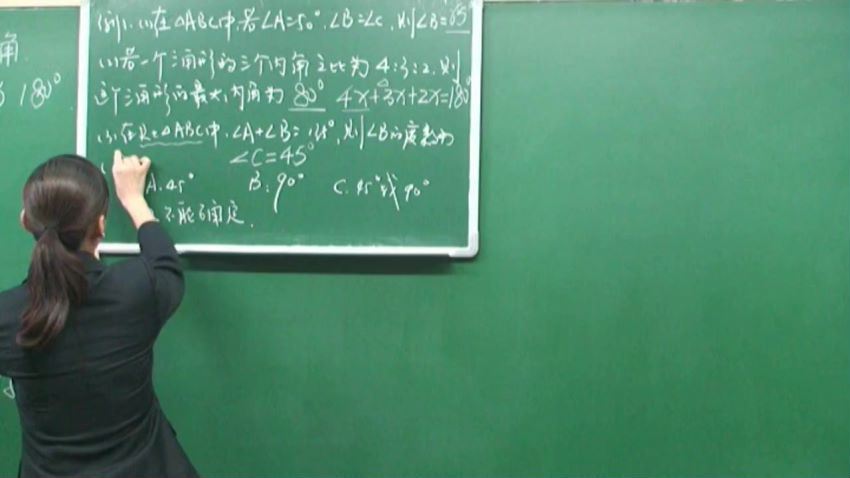 角
180°
例1.(1)在△ABC中,若∠A=50°,∠B=∠C,则∠B=65°
(2)若一个三角形的三个内角之比为4:3:2,则
这个三角形的最大内角为 80° 4x+3x+2x=180°
(3)在Rt△ABC中,∠A+∠B=135°,则∠B的度数为
∠C=45°
A.45° B.90° C.45°或90°
不能确定.